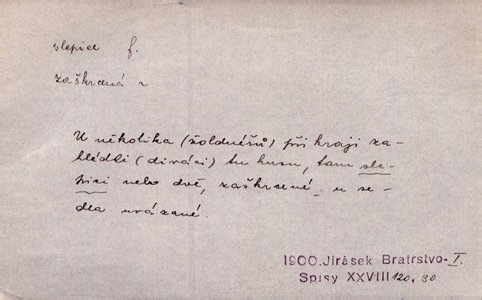 slepice f.
zaškrcená ~
U několika (žoldnéřů) při kraji za-
hlédli (diváci) tu husu, tam sle-
pici nebo dvě, zaškrcené, u se-
dla uvázané.
1900. Jirásek Bratrstvo-I.
Spisy XXVIII 120.30